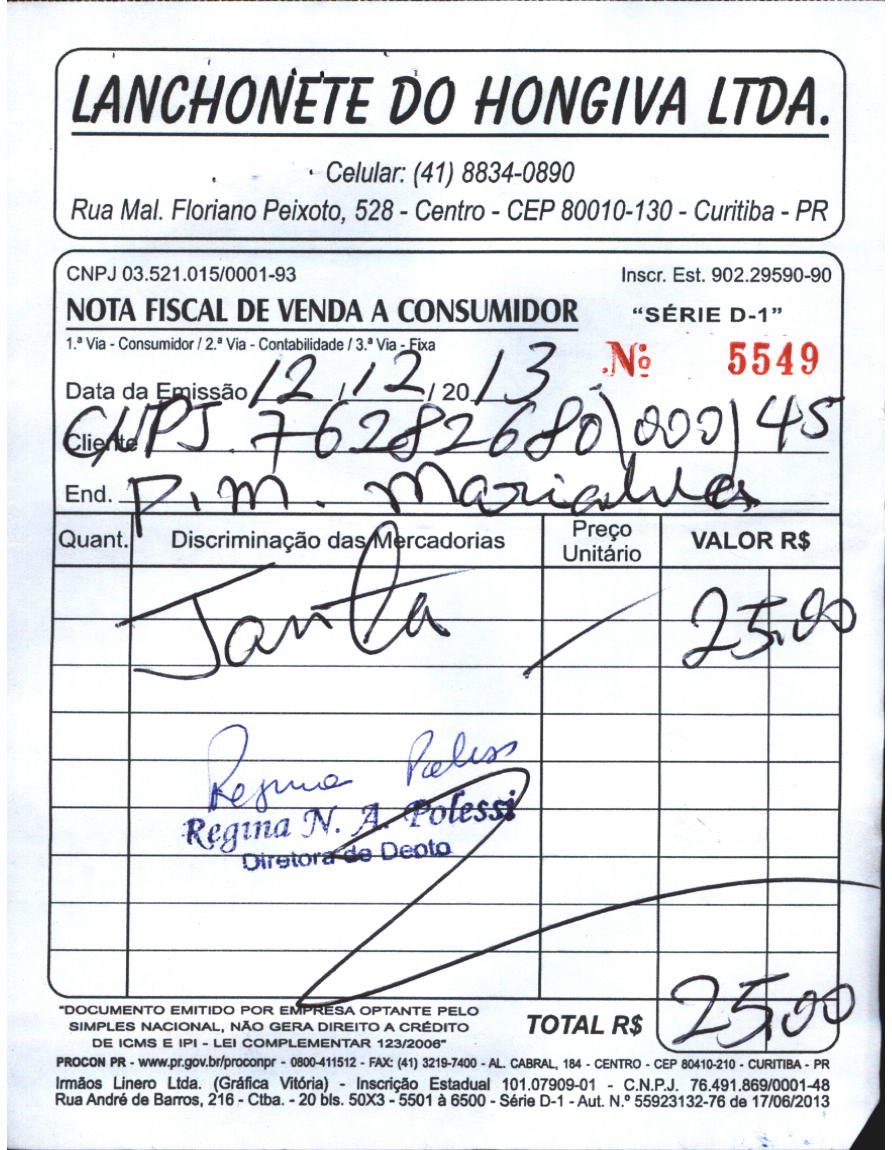 LANCHONETE DO HONGIVA LTDA.
Celular: (41) 8834-0890
Rua Mal. Floriano Peixoto, 528 - Centro - CEP 80010-130 - Curitiba - PR
CNPJ 03.521.015/0001-93 Inscr. Est. 902.29590-90
NOTA FISCAL DE VENDA A CONSUMIDOR "SÉRIE D-1"
1.ª Via - Consumidor / 2.ª Via - Contabilidade / 3.ª Via - Fixa
Nº 5549
Data da Emissão 12 / 12 / 20 13
Cliente CNPJ. 76282680\000/45
End. P.M. Marialves
Quant. Discriminação das Mercadorias Preço Unitário VALOR R$
Janta / 25,00
Regina Poless
Regina N. A. Polessi
Diretora de Depto
"DOCUMENTO EMITIDO POR EMPRESA OPTANTE PELO
SIMPLES NACIONAL, NÃO GERA DIREITO A CRÉDITO
DE ICMS E IPI - LEI COMPLEMENTAR 123/2006"
TOTAL R$ 25,00
PROCON PR - www.pr.gov.br/proconpr - 0800-411512 - FAX: (41) 3219-7400 - AL. CABRAL, 184 - CENTRO - CEP 80410-210 - CURITIBA - PR
Irmãos Linero Ltda. (Gráfica Vitória) - Inscrição Estadual 101.07909-01 - C.N.P.J. 76.491.869/0001-48
Rua André de Barros, 216 - Ctba. - 20 bls. 50X3 - 5501 à 6500 - Série D-1 - Aut. N.º 55923132-76 de 17/06/2013